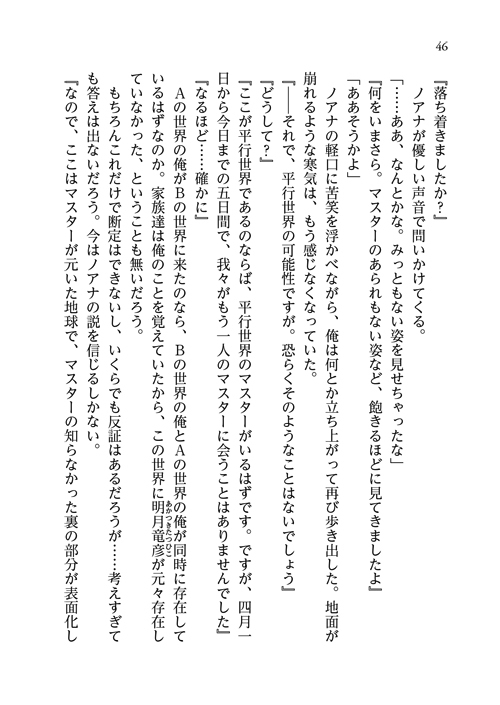 46
『落ち着きましたか？』
　ノアナが優しい声音で問いかけてくる。
「……ああ、なんとかな。みっともない姿を見せちゃったな」
『何をいまさら。マスターのあられもない姿など、飽きるほどに見てきましたよ』
「ああそうかよ」
　ノアナの軽口に苦笑を浮かべながら、俺は何とか立ち上がって再び歩き出した。地面が
崩れるような寒気は、もう感じなくなっていた。
『――それで、平行世界の可能性ですが。恐らくそのようなことはないでしょう』
『どうして？』
『ここが平行世界であるのならば、平行世界のマスターがいるはずです。ですが、四月一
日から今日までの五日間で、我々がもう一人のマスターに会うことはありませんでした』
『なるほど……確かに』
　Ａの世界の俺がＢの世界に来たのなら、Ｂの世界の俺とＡの世界の俺が同時に存在して
いるはずなのか。家族達は俺のことを覚えていたから、この世界に明月竜彦が元々存在し
あかつきたつひこ
ていなかった、ということも無いだろう。
　もちろんこれだけで断定はできないし、いくらでも反証はあるだろうが……考えすぎて
も答えは出ないだろう。今はノアナの説を信じるしかない。
『なので、ここはマスターが元いた地球で、マスターの知らなかった裏の部分が表面化し